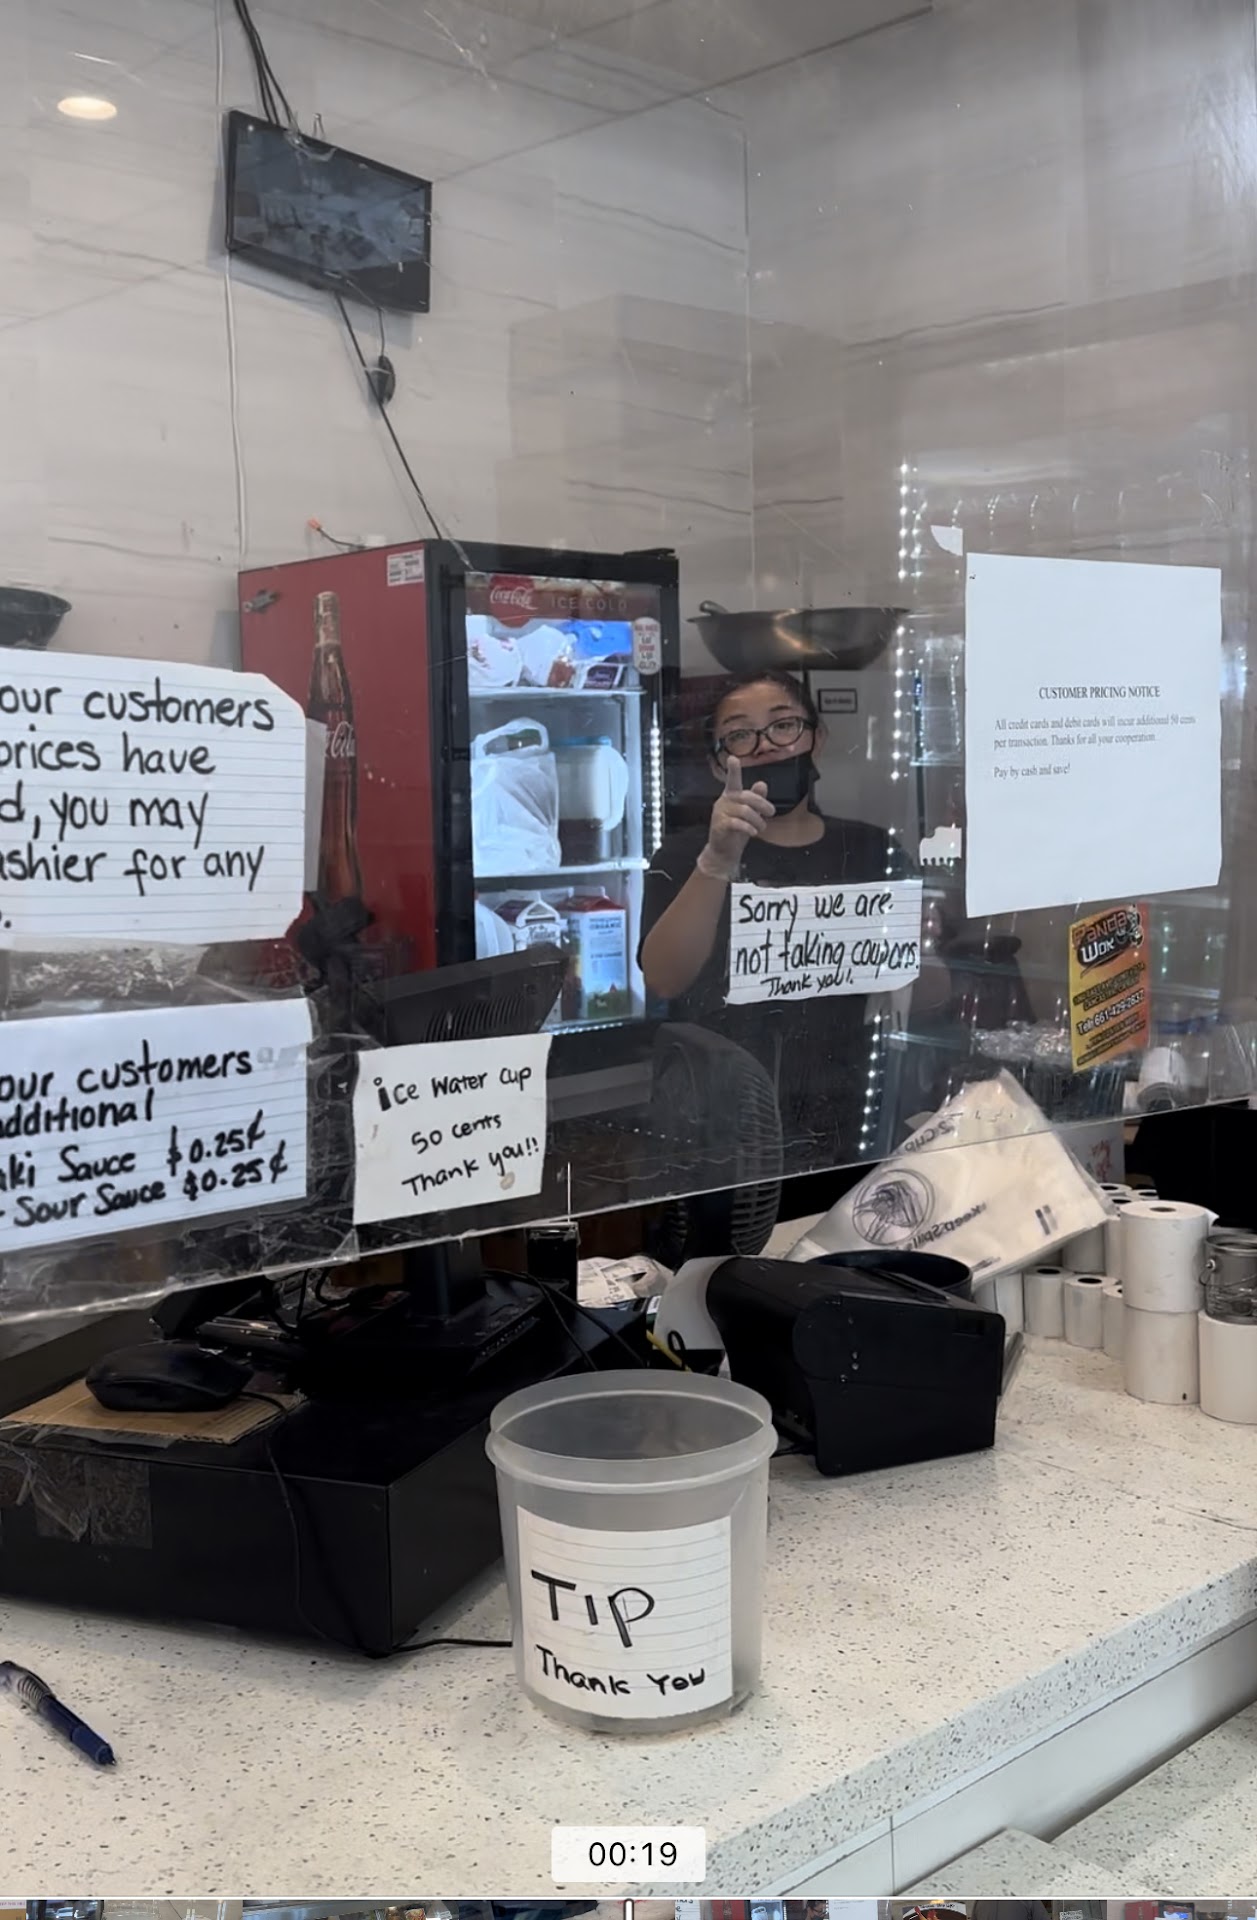 our customers
prices have
d, you may
ashier for any
our customers
additional
aki Sauce $0.25¢
- Sour Sauce $0.25¢
ice Water Cup
50 cents
Thank you!!
Coca-Cola
ICE COLD
ORGANIC
Sorry we are
not taking coupons.
Thank you!
CUSTOMER PRICING NOTICE
All credit cards and debit cards will incur additional 50 cents
per transaction. Thanks for all your cooperation.
Pay by cash and save!
Panda
Wok
Tel: 661-429-2637
Tip
Thank You
00:19